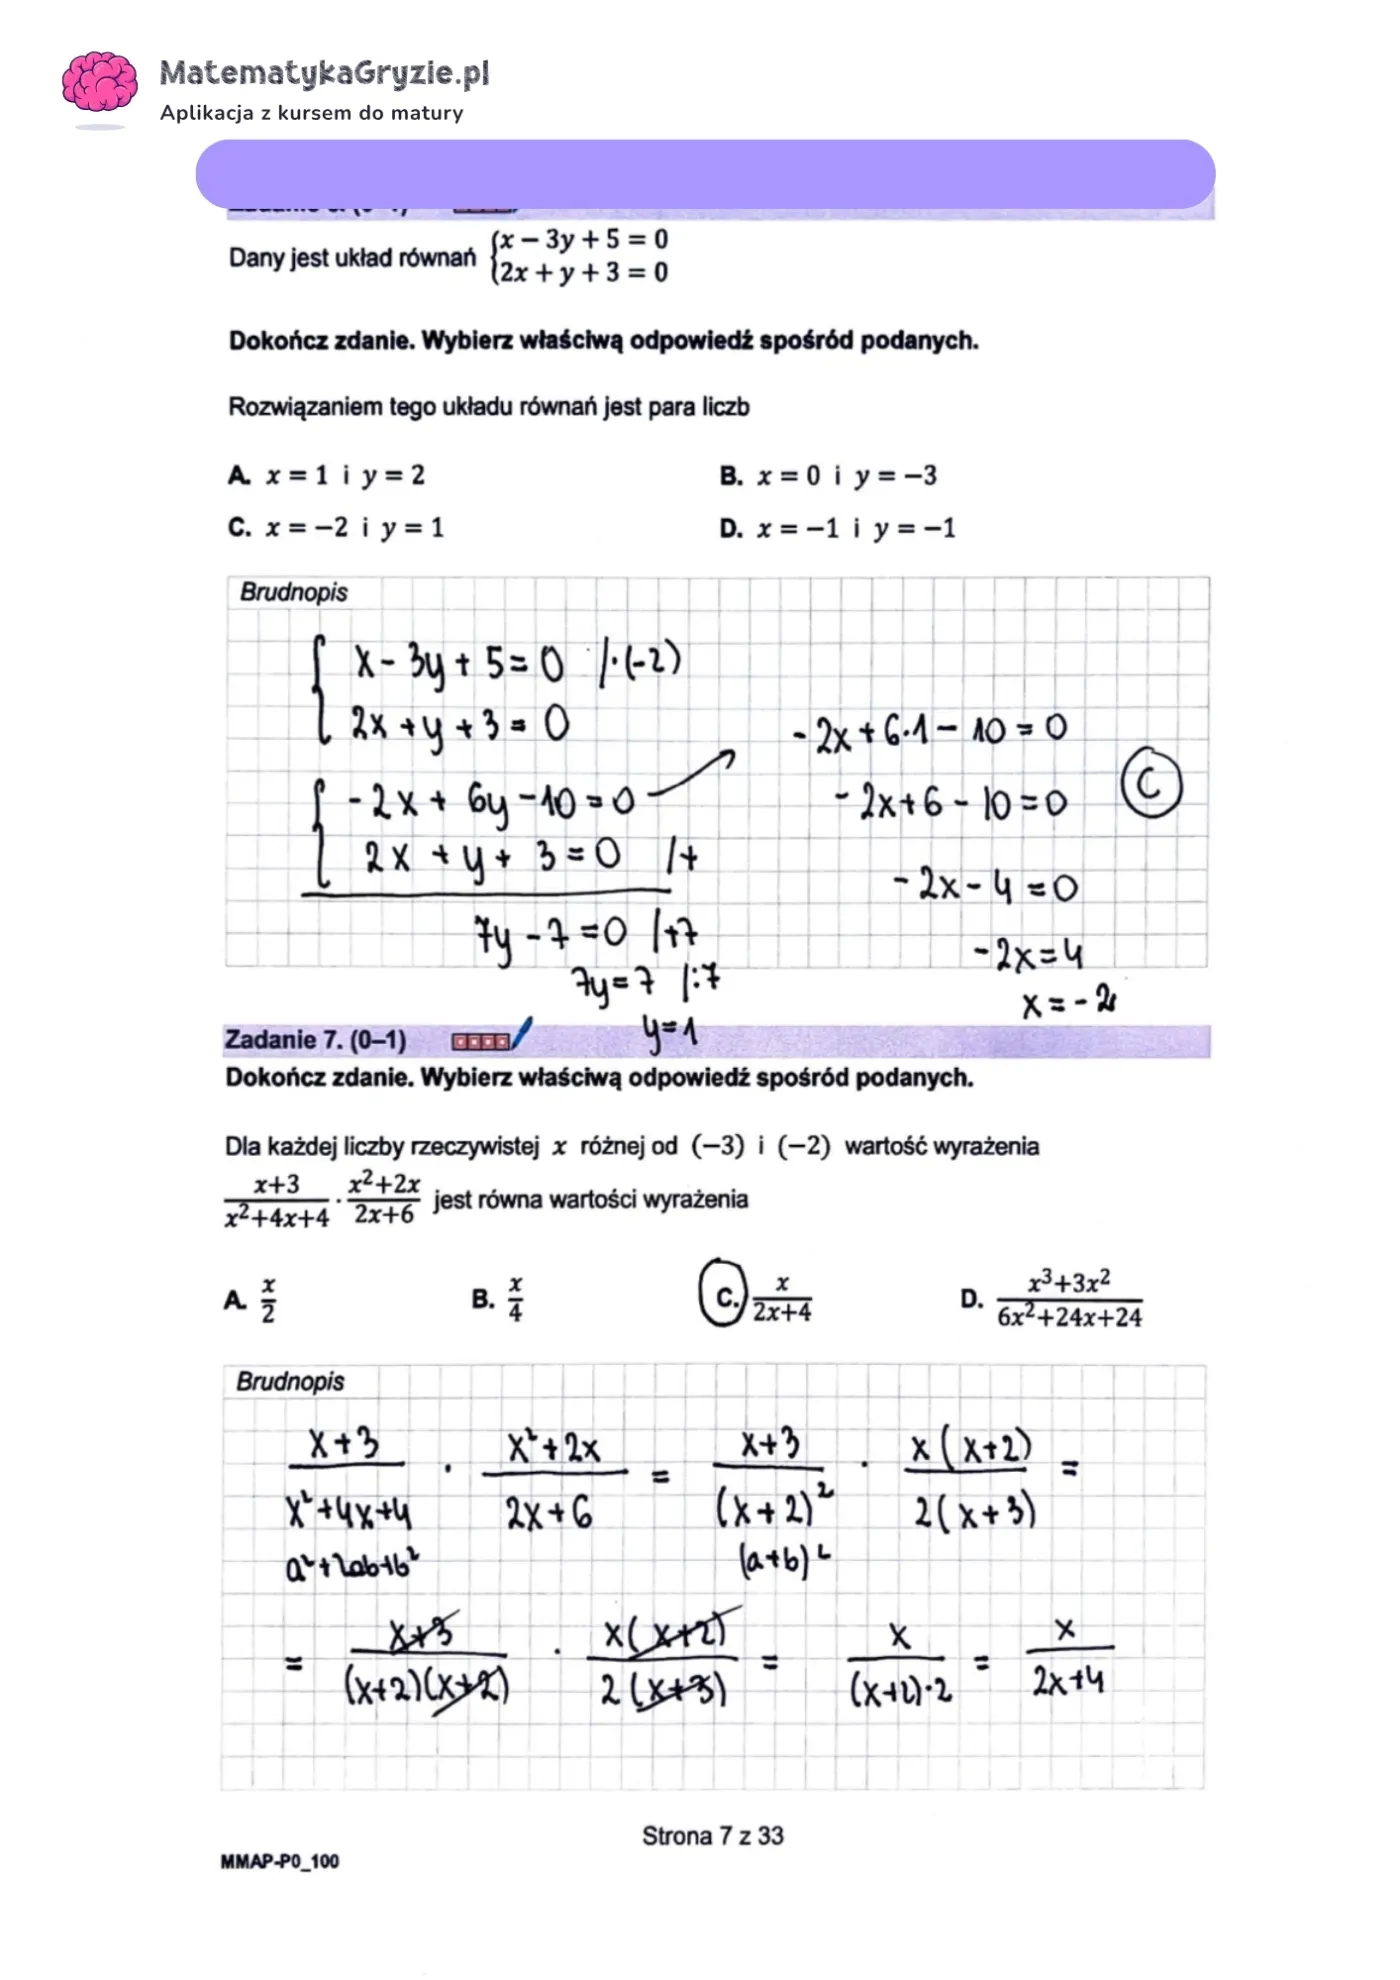 MatematykaGryzie.pl
Aplikacja z kursem do matury
Dany jest układ równań {x − 3y + 5 = 0
2x + y + 3 = 0
Dokończ zdanie. Wybierz właściwą odpowiedź spośród podanych.
Rozwiązaniem tego układu równań jest para liczb
A. x = 1 i y = 2
B. x = 0 i y = −3
C. x = −2 i y = 1
D. x = −1 i y = −1
Brudnopis
x - 3y + 5 = 0 /·(-2)
2x + y + 3 = 0
- 2x + 6y - 10 = 0
2x + y + 3 = 0 /+
7y - 7 = 0 /+7
7y = 7 /:7
y = 1
- 2x + 6·1 - 10 = 0
- 2x + 6 - 10 = 0
- 2x - 4 = 0
- 2x = 4
x = - 2
C
Zadanie 7. (0–1)
Dokończ zdanie. Wybierz właściwą odpowiedź spośród podanych.
Dla każdej liczby rzeczywistej x różnej od (−3) i (−2) wartość wyrażenia
x+3/x²+4x+4 · x²+2x/2x+6 jest równa wartości wyrażenia
A. x/2
B. x/4
C. x/2x+4
D. x³+3x²/6x²+24x+24
Brudnopis
x+3/x²+4x+4 · x²+2x/2x+6 = x+3/(x+2)² · x(x+2)/2(x+3) =
a²+2ab+b² (a+b)²
= x+3/(x+2)(x+2) · x(x+2)/2(x+3) = x/(x+2)·2 = x/2x+4
Strona 7 z 33
MMAP-P0_100